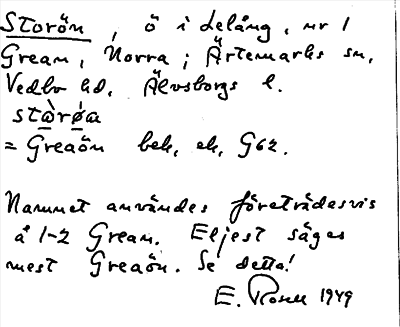 Storön, ö i Lelång, nr 1
Grean, Norra; Ärtemarks sn,
Vedbo hd, Älvsborgs l.
stɷ̀røa
= Greaön bek, ek, G62.
Namnet användes företrädesvis
å 1-2 Grean. Eljest säges
mest Greaön. Se detta!
E. Rosell 1949